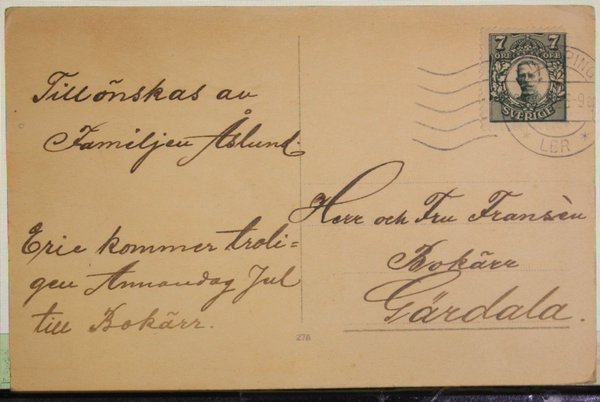 Tillönskas av
Familjen Åslund.
Eric kommer troli-
gen Annandag Jul
till Bokärr.
276
7 7
ÖRE ÖRE
SVERIGE
LBR
Herr och Fru Fransèn
Bokärr
Gärdala.